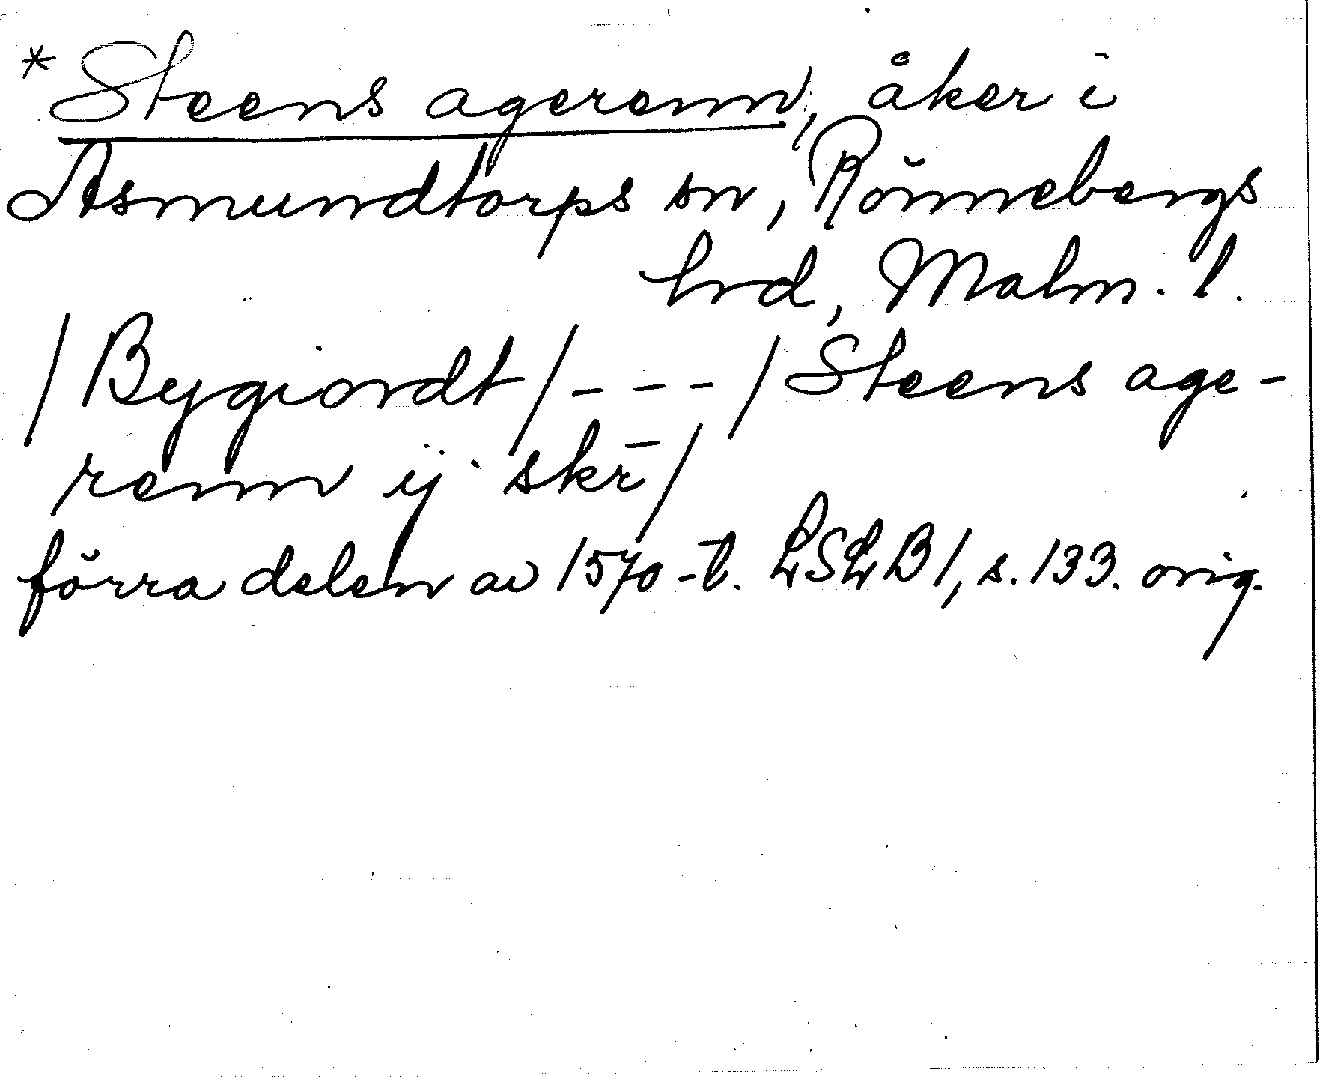 *Steens agerenn, åker i
Asmundtorps sn, Rönnebergs
hrd, Malm. l.
/Bygiordt/- - -/Steens age-
renn ij skr̄/
förra delen av 1570-t. LSLB1, s. 133. orig.